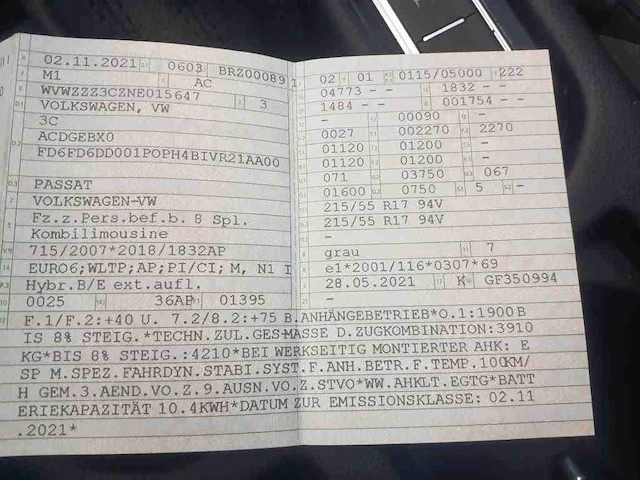 02.11.2021 0603 BRZ00089 1
M1 AC
WVWZZZ3CZNE015647 3
VOLKSWAGEN, VW
3C
ACDGEBX0
FD6FD6DD001POPH4BIVR21AA00
PASSAT
VOLKSWAGEN-VW
Fz.z.Pers.bef.b. 8 Spl.
Kombilimousine
715/2007*2018/1832AP
EURO6;WLTP;AP;PI/CI; M, N1 I
Hybr.B/E ext.aufl.
0025 36AP 01395
02 01 0115/05000 222
04773 - - 1832 - -
1484 - - 001754 - -
- 00090 -
0027 002270 2270
01120 01200 -
01120 01200 -
071 03750 067
01600 0750 5 -
215/55 R17 94V
215/55 R17 94V
-
grau 7
e1*2001/116*0307*69
28.05.2021 K GF350994
-
F.1/F.2:+40 U. 7.2/8.2:+75 B.ANHÄNGEBETRIEB*O.1:1900 B
IS 8% STEIG.*TECHN.ZUL.GES-MASSE D.ZUGKOMBINATION:3910
KG*BIS 8% STEIG.:4210*BEI WERKSEITIG MONTIERTER AHK: E
SP M.SPEZ.FAHRDYN.STABI.SYST.F.ANH.BETR.F.TEMP.100KM/
H GEM.3.AEND.VO.Z.9.AUSN.VO.Z.STVO*WW.AHKLT.EGTG*BATT
ERIEKAPAZITÄT 10.4KWH*DATUM ZUR EMISSIONSKLASSE: 02.11
.2021*